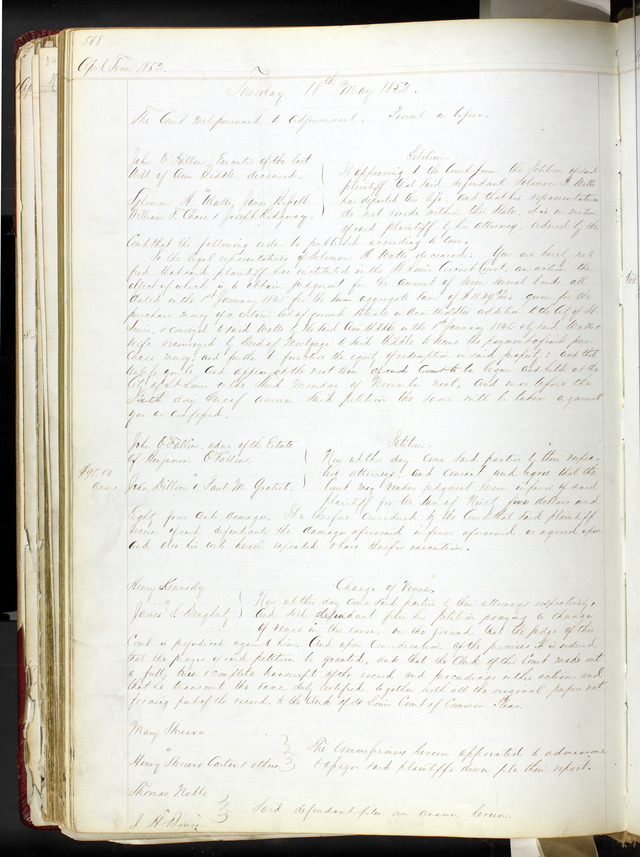 568
April Term 1852.
Tuesday 18th May 1852.
The Court met pursuant to adjournment. Present as before.
John O'Fallon, Executor of the last
Will of Ann Biddle, deceased.
"
Solomon H. Watts, James
William P. Chase & Joseph Ridgway.
Petition
It appearing to the Court from the Petition of said
plaintiff that said defendant Solomon H. Watts
has departed this life, and that his representatives
do not reside within this State, it is on motion
of said plaintiff by his attorney, ordered by the
Court that the following order be published according to law.
To the legal representatives of Solomon H. Watts deceased: You are hereby noti-
fied that said plaintiff has instituted in the St Louis Circuit Court, an action the
object of which is to obtain judgment for the amount of seven several bonds all
dated on the 1st January 1846 for the sum aggregate sum of given for the
purchase money of a certain lot of ground situate in Ann Biddles addition to the City of St
Louis, & conveyed to said Watts by the said Ann Biddle on the 1st January 1846, & by said Watts &
wife reconveyed by Deed of Mortgage to said Biddle to secure the payment of said pur-
chase money, and further to foreclose the equity of redemption in said property: and that
unless you be and appear at the next term of said Court to be begun and held at the
City of St Louis on the third Monday of November next, and on or before the
Sixth day thereof answer said petition the same will be taken against
you as confessed.
John O'Fallon, admr of the Estate
of Benjamin O'Fallon.
"
John Dillon & Saml M.
$95.84
Dam.
Petition.
Now at this day come said parties by their respec-
tive attorneys, and consent and agree that the
Court may render judgment herein in favor of said
plaintiff for the sum of Ninety five dollars and
Eighty four cents damages. It is therefore considered by the Court that said plaintiff
recover of said defendants the damages aforesaid in form aforesaid as agreed upon
and also his costs herein expended & have therefor execution.
Henry Kennedy
"
James L.
Change of Venue.
Now at this day come said parties by their attorneys respectively,
and said defendant files his petition praying a change
of venue in this cause, on the ground that the judge of this
Court is prejudiced against him. And upon consideration of the premises it is ordered
that the prayer of said petition be granted, and that the Clerk of this Court make out
a full, true & complete transcript of the record and proceedings in this action, and
that he transmit the same duly certified together with all the original papers not
forming part of the record, to the Clerk of St Louis Court of Common Pleas.
Mary Shreve
"
Henry Shreve Carter & others
The Commissioners herein appointed to admeasure
& assign said plaintiffs dower file their report.
Thomas
"
J. H.
Said defendant files an answer herein.